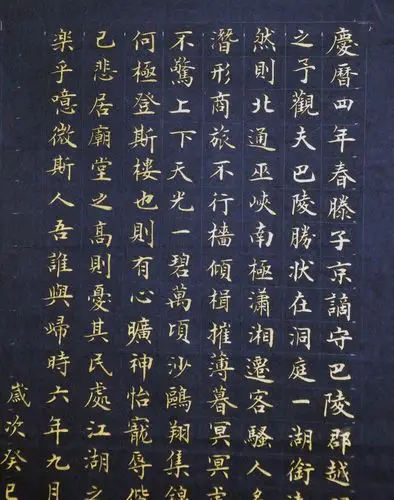 慶曆四年春滕子京謫守巴陵郡越
之予觀夫巴陵勝狀在洞庭一湖銜
然則北通巫峽南極瀟湘遷客騷人
潛形商旅不行檣傾楫摧薄暮冥冥
不驚上下天光一碧萬頃沙鷗翔集錦
何極登斯樓也則有心曠神怡寵辱偕
已悲居廟堂之高則憂其民處江湖之
樂乎噫微斯人吾誰與歸時六年九月
歲次癸巳